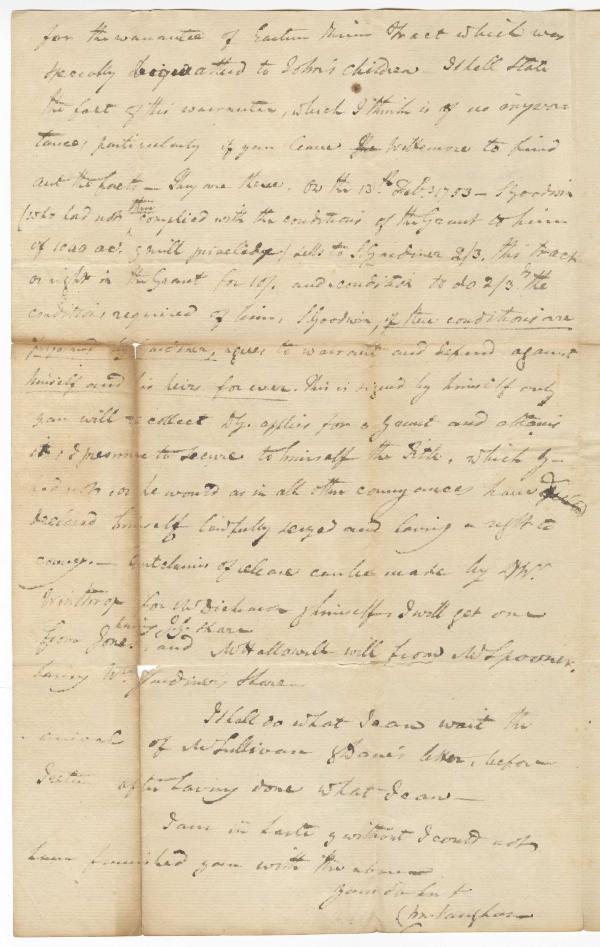 for the warrantee of Eastern River Tract which was
specially bequeathed to John's children I shall State
the fact of this warrantee, which I think is of no impor
tance, particularly if you leave Wittemore to find
out the facts — They are these. On the 13th Feb.y 1753 — S Goodwin
(who had not then complied with the conditions of the Grant to him
of acs. & mill priveledge) sells to S. Gardiner 2/3. this tract
or right in the Grant for 10/. and condition to do 2/3 the
conditions required of him, S Goodwin, if these conditions are
by Gardiner, agrees to warrant and defend against
himself and his heirs for ever. This is signed by himself only
you will recollect Dr. applies for a Grant and obtains
it; I presume to secure to himself the Title, which G—
had not or he would as in all other conveyances have
declared himself lawfully seized and having a right to
convey — Quitclaims of release can be made by
Winthrop for Mr Dickason & himself, I will get one
from Jones having share and Mr Hallowell will from Mr Spooner,
having Wm Gardiner's Share —
I shall do what I can wait the
arrival of Mr Sullivan & Dane's letter, before
I after having done what I can —
I am in haste & without I could not
have furnished you with the above
Your
Vaughan